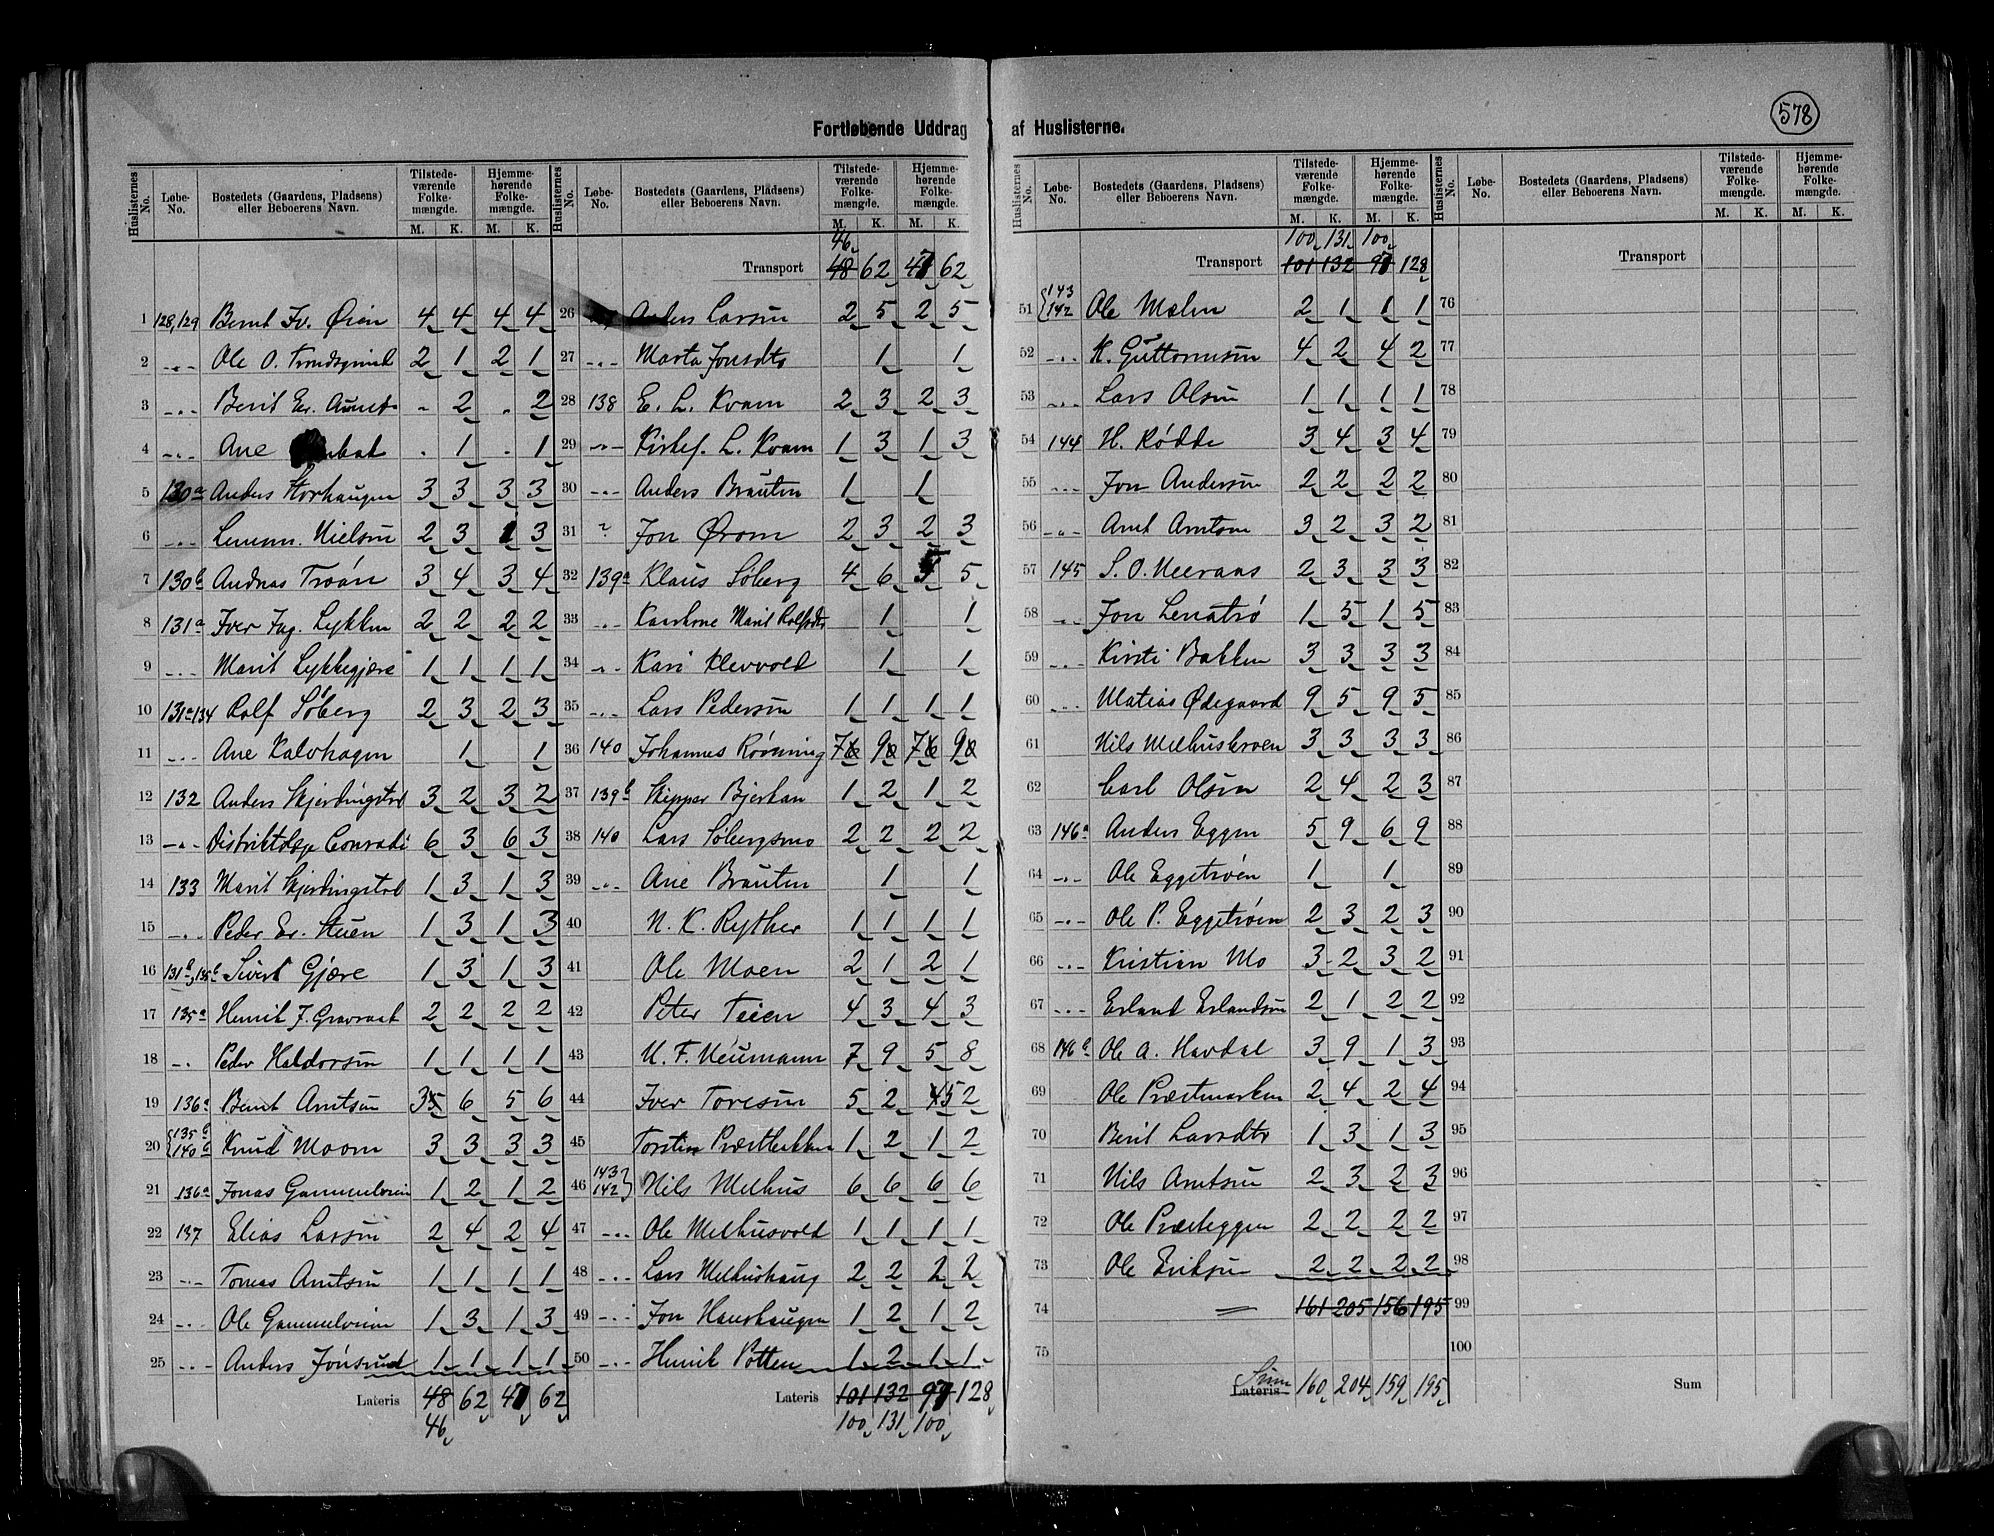 578
Fortløbende Uddrag af Huslisterne.
Huslisternes No. Løbe-No. Bostedets (Gaardens, Pladsens) eller Beboerens Navn. Tilstedeværende Folkemængde. M. K. Hjemmehørende Folkemængde. M. K.
1 128,129 Bernt Iv. Øien 4 4 4 4
2 -"- Ole O. 2 1 2 1
3 -"- Berit Er. - 2 - 2
4 -"- Ane - 1 - 1
5 130a Anders Storhaugen 3 3 3 3
6 -"- Nielsen 2 3 1 3
7 130b Andreas Trøen 3 4 3 4
8 131a Iver Ing. Lykken 2 2 2 2
9 -"- Marit Lykkegjære 1 1 1 1
10 131a 134 Rolf Søberg 2 3 2 3
11 -"- Ane Kalvhagen 1 1
12 132 Anders Skjerdingstad 3 2 3 2
13 -"- Distriktslæge Conradi 6 3 6 3
14 133 Marit Skjerdingstad 1 3 1 3
15 -"- Peder Er. Stuen 1 3 1 3
16 131b, 135b Sivert Gjære 1 3 1 3
17 135a Henrik J. Gravraak 2 2 2 2
18 -"- Peder Haldorsen 1 1 1 1
19 136a Bernt Arntsen 35 6 5 6
20 135b 140b Knud Moom 3 3 3 3
21 136a Jonas Gammelveien 1 2 1 2
22 137 Elias Larsen 2 4 2 4
23 -"- Tomas Arntsen 1 1 1 1
24 -"- Ole Gammelveien 1 3 1 3
25 -"- Anders 1 1 1 1
Lateris 48 62 47 62
46
46
Transport 48 62 47 62
26 Anders Larsen 2 5 2 5
27 -"- Marta Jonsdtr 1 1
28 138 E. L. Kvam 2 3 2 3
29 -"- L. Kvam 1 3 1 3
30 -"- Anders Brauten 1 1
31 Jon Ørom 2 3 2 3
32 139a Klaus Søberg 4 6 5 5
33 -"- Marit Rolfsdtr 1 1
34 -"- Kari Klevvold 1 1
35 -"- Lars Pedersen 1 1 1 1
36 140 Johannes Rønning 7 9 7 9
37 139b Skipper Bjerkan 1 2 1 2
38 140 Lars Søbergsmo 2 2 2 2
39 -"- Ane Brauten 1 1
40 N. K. Ryther 1 1 1 1
41 Ole Moen 2 1 2 1
42 Peter Teien 4 3 4 3
43 U. F. Neumann 7 9 5 8
44 Iver Toresen 5 2 5 2
45 Torsten Præstbakken 1 2 1 2
46 143 142 Nils Melhus 6 6 6 6
47 -"- Ole Melhusvold 1 1 1 1
48 -"- Lars Melhushaug 2 2 2 2
49 -"- Jon Haushaugen 1 2 1 2
50 -"- Henrik Potten 1 2 1 1
Lateris 101 132 97 128
100 131 100
100 131 100
Transport 101 132 97 128
51 143 142 Ole Malen 2 1 1 1
52 -"- K. Guttormsen 4 2 4 2
53 -"- Lars Olsen 1 1 1 1
54 144 H. Rødde 3 4 3 4
55 -"- Jon Andersen 2 2 2 2
56 -"- Arnt Arntsen 3 2 3 2
57 145 S. O. Meeraas 2 3 3 3
58 -"- Jon Lenatrø 1 5 1 5
59 -"- Kirsti Bakken 3 3 3 3
60 -"- Matias Ødegaard 9 5 9 5
61 Nils Melhuskroen 3 3 3 3
62 Carl Olsen 2 4 2 3
63 146a Anders Eggen 5 9 6 9
64 -"- Ole Eggetrøen 1 1
65 -"- Ole P. Eggetrøen 2 3 2 3
66 -"- Kristian Mo 3 2 3 2
67 -"- Erland Erlandsen 2 1 2 2
68 146b Ole A. Havdal 3 9 1 3
69 Ole Præstmarken 2 4 2 4
70 Berit Larsdtr 1 3 1 3
71 Nils Arntsen 2 3 2 3
72 Ole Præsteggen 2 2 2 2
73 Ole Eriksen 2 2 2 2
74 161 205 156 195
75
Sum Lateris 160 204 159 195
Transport
76
77
78
79
80
81
82
83
84
85
86
87
88
89
90
91
92
93
94
95
96
97
98
99
100
Sum